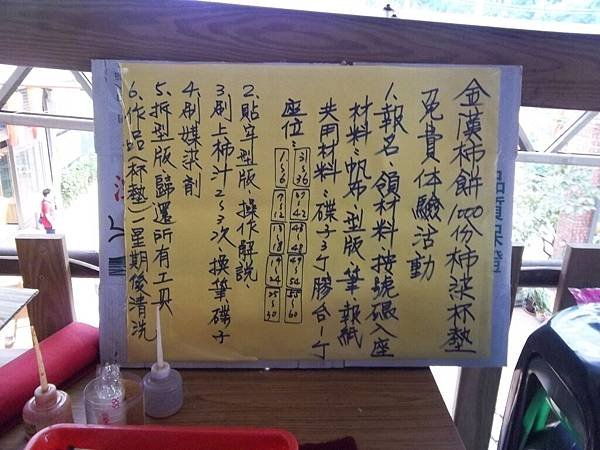 金漢柿餅1000份柿染杯墊
免費体驗活動
1.報名、領材料、按號碼入座
材料:帆布、型版、筆、報紙
共用材料:碟子3个膠台1个
座位:
31~36
37~42
43~48
49~54
55~60
1~6
7~12
13~18
19~24
25~30
2.貼牢型版、操作解說、
3.刷上柿汁2~3次、換筆、碟子
4.刷媒染劑
5.拆型版歸還所有工具
6.作品(杯墊)一星期後清洗
品質保證